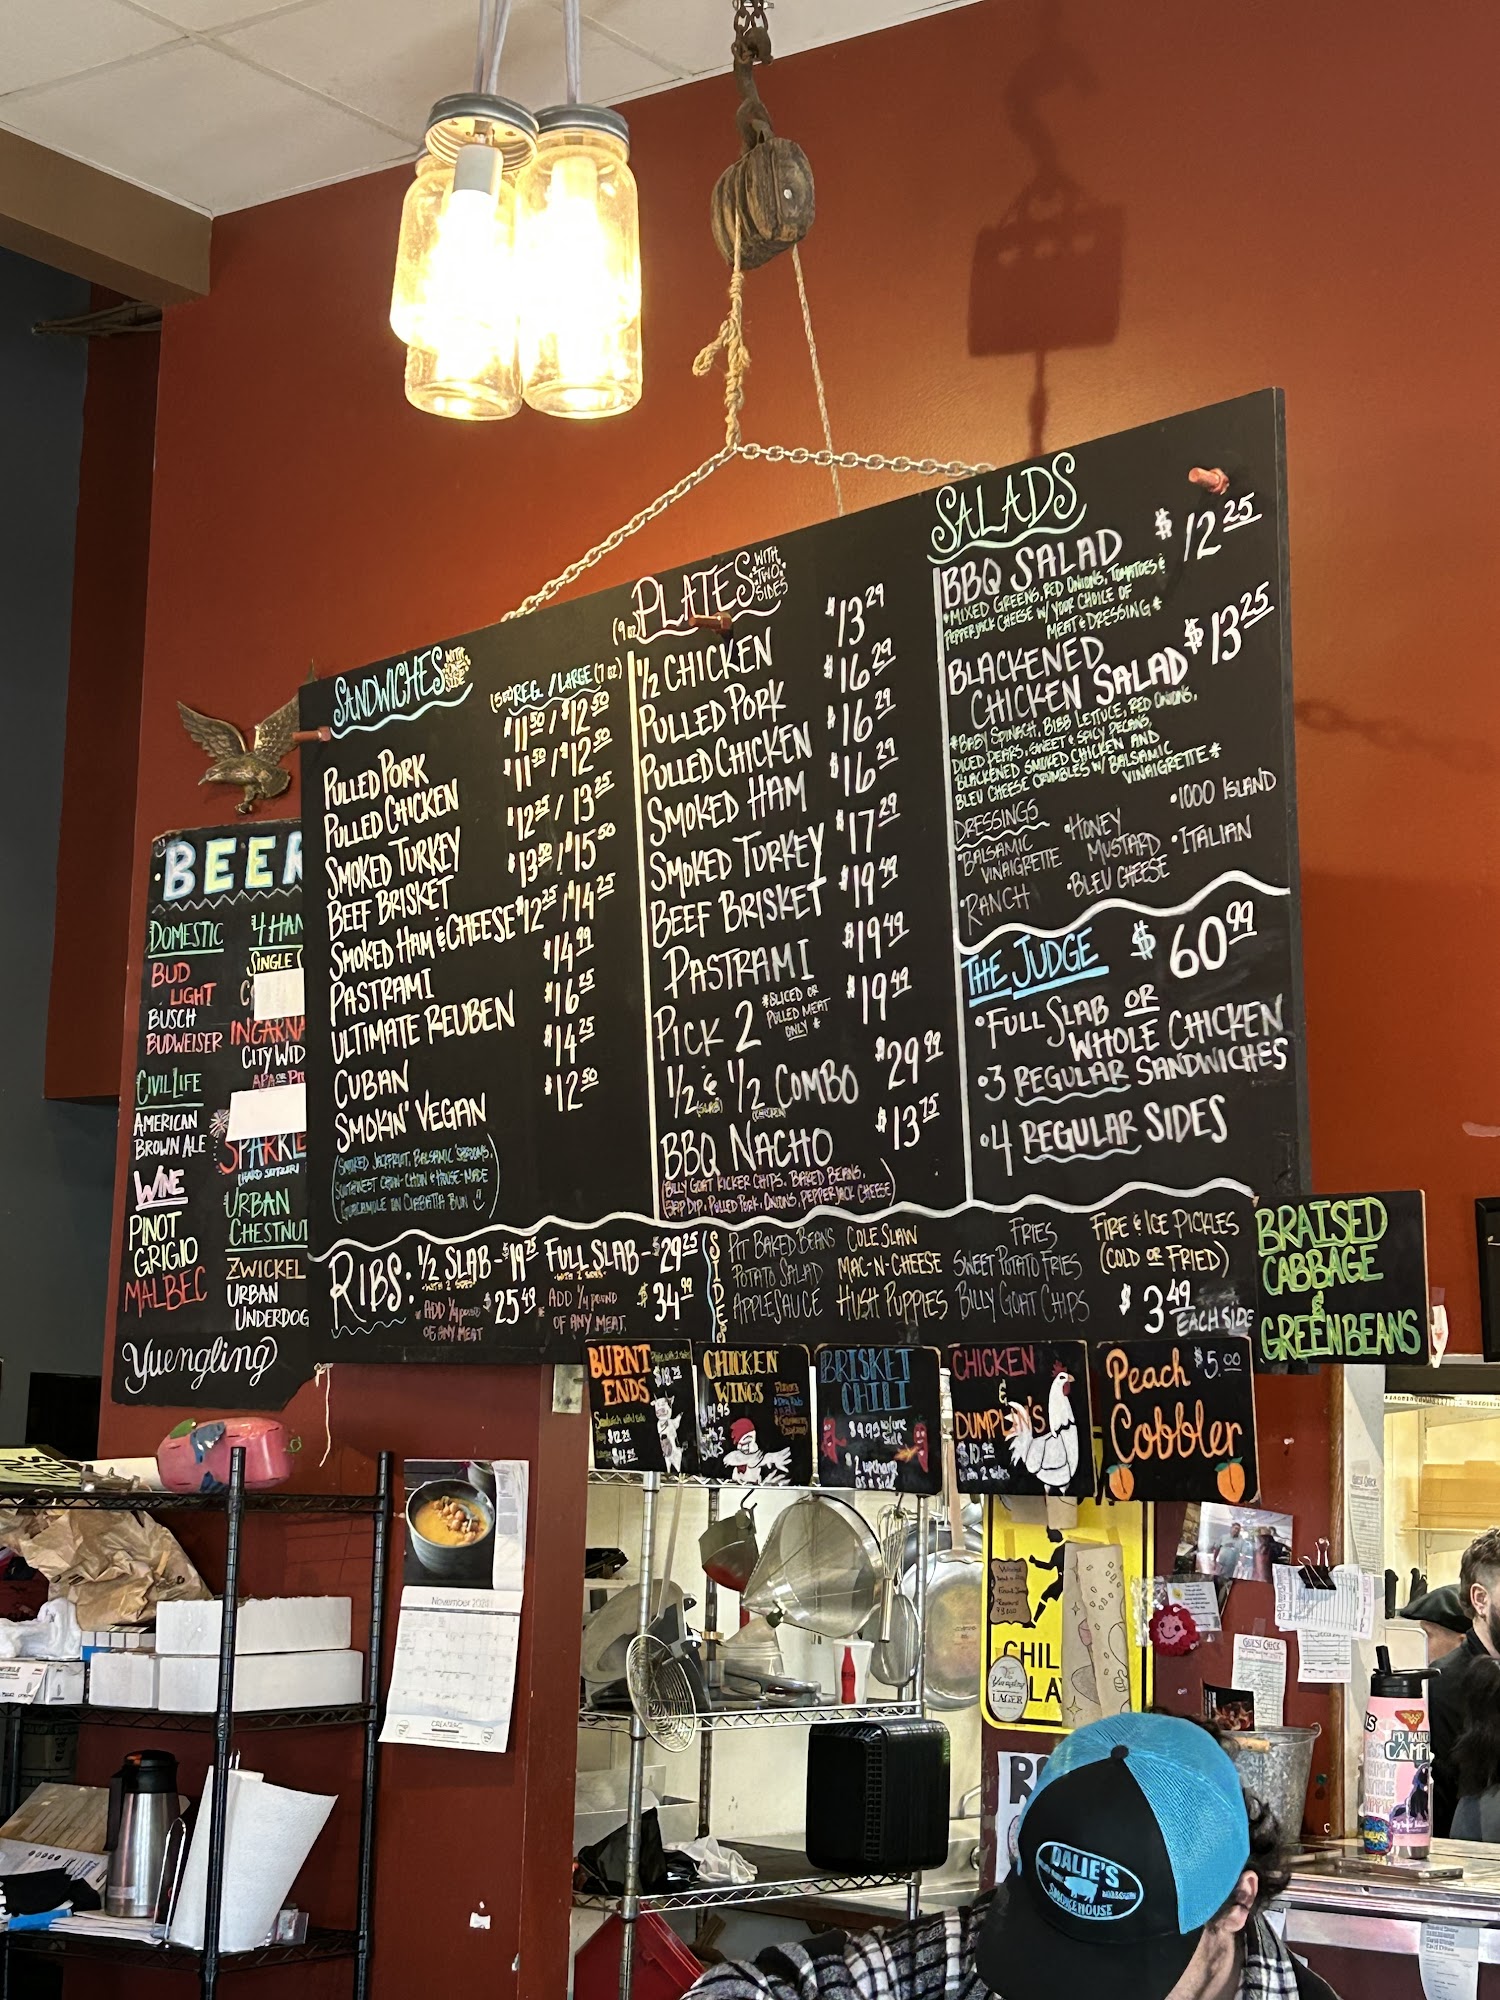 SANDWICHES WITH ONE SIDE
(5 oz) REG. / LARGE (7 oz)
PULLED PORK $11.50 / $12.50
PULLED CHICKEN $11.50 / $12.50
SMOKED TURKEY $12.25 / 13.25
BEEF BRISKET $13.50 / $15.50
SMOKED HAM & CHEESE $12.25 / $14.25
PASTRAMI $14.99
ULTIMATE REUBEN $16.25
CUBAN $14.25
SMOKIN' VEGAN $12.50
(SMOKED JACKFRUIT, BALSAMIC SHROOMS,
SOUTHWEST CHOW-CHOW & HOUSE-MADE
GUACAMOLE ON CIABATTA BUN)
(9 oz) PLATES WITH "TWO" SIDES
1/2 CHICKEN $13.29
PULLED PORK $16.29
PULLED CHICKEN $16.29
SMOKED HAM $16.29
SMOKED TURKEY $17.29
BEEF BRISKET $19.49
PASTRAMI $19.49
PICK 2 *SLICED OR PULLED MEAT ONLY* $19.49
1/2 (SLAB) & 1/2 (CHICKEN) COMBO $29.99
BBQ NACHO $13.75
(BILLY GOAT KICKER CHIPS, BAKED BEANS,
DIP, PULLED PORK, ONIONS, PEPPERJACK CHEESE)
SALADS
BBQ SALAD $12.25
*MIXED GREENS, RED ONIONS, TOMATOES &
PEPPERJACK CHEESE W/ YOUR CHOICE OF
MEAT & DRESSING*
BLACKENED
CHICKEN SALAD $13.25
*BABY SPINACH, BIBB LETTUCE, RED ONIONS,
DICED PEARS, SWEET & SPICY PECANS,
BLACKENED SMOKED CHICKEN AND
BLEU CHEESE CRUMBLES W/ BALSAMIC
VINAIGRETTE*
DRESSINGS
•BALSAMIC
VINAIGRETTE
•RANCH
•HONEY
MUSTARD
•BLEU CHEESE
•1000 ISLAND
•ITALIAN
THE JUDGE $60.99
•FULL SLAB OR
WHOLE CHICKEN
•3 REGULAR SANDWICHES
•4 REGULAR SIDES
RIBS: 1/2 SLAB - $19.75
WITH 2 SIDES
ADD 1/4 POUND
OF ANY MEAT $25.49
FULL SLAB - $29.25
WITH 2 SIDES
ADD 1/4 POUND
OF ANY MEAT. $34.99
SIDES
PIT BAKED BEANS
POTATO SALAD
APPLESAUCE
COLE SLAW
MAC-N-CHEESE
HUSH PUPPIES
FRIES
SWEET POTATO FRIES
BILLY GOAT CHIPS
FIRE & ICE PICKLES
(COLD OR FRIED)
$3.49
EACH SIDE
BRAISED
CABBAGE
&
GREEN BEANS
BEER
DOMESTIC
BUD
LIGHT
BUSCH
BUDWEISER
CIVIL LIFE
AMERICAN
BROWN ALE
WINE
PINOT
GRIGIO
MALBEC
Yuengling
4 HAN
SINGLE
INCARNA
CITY WID
APA OR PI
SPARKLE
(HARD SELTZER)
URBAN
CHESTNUT
ZWICKEL
URBAN
UNDERDOG
BURNT
ENDS
CHICKEN
WINGS
$14.95
BRISKET
CHILI
$9.95 w/one
side
$2 upcharge
as a side
CHICKEN
&
DUMPLIN'S
$10.95
with 2 sides
Peach $5.00
Cobbler
November
CHIL
LA
Yuengling
LAGER
GUEST CHECK
DALIE'S
SMOKEHOUSE
CAMP